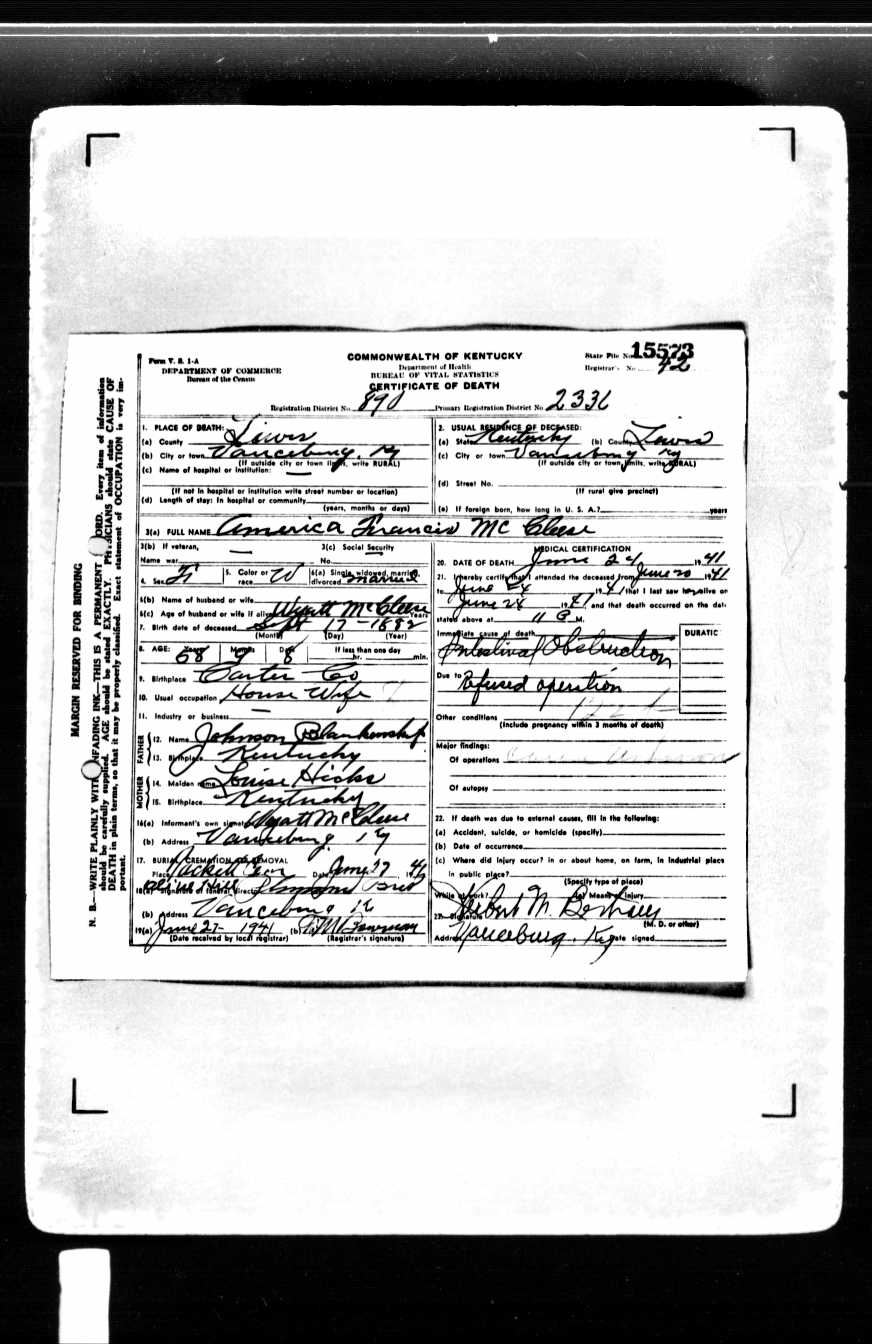 MARGIN RESERVED FOR BINDING
N. B.—WRITE PLAINLY WITH UNFADING INK—THIS IS A PERMANENT RECORD. Every item of information
should be carefully supplied. AGE should be stated EXACTLY. PHYSICIANS should state CAUSE OF
DEATH in plain terms, so that it may be properly classified. Exact statement of OCCUPATION is very im-
portant.
Form V. S. 1-A
DEPARTMENT OF COMMERCE
Bureau of the Census
COMMONWEALTH OF KENTUCKY
Department of Health
BUREAU OF VITAL STATISTICS
CERTIFICATE OF DEATH
State File No. 15573
Registrar's No. 42
Registration District No. 890 Primary Registration District No. 2336
1. PLACE OF DEATH:
(a) County Lewis
(b) City or town Vanceburg, Ky
(If outside city or town limits, write RURAL)
(c) Name of hospital or institution: —
(If not in hospital or institution write street number or location)
(d) Length of stay: In hospital or community
(years, months or days)
2. USUAL RESIDENCE OF DECEASED:
(a) State Kentucky (b) County Lewis
(c) City or town Vanceburg Ky
(If outside city or town limits, write RURAL)
(d) Street No.
(If rural give precinct)
(e) If foreign born, how long in U. S. A.? years
3(a) FULL NAME America Francis McCleese
3(b) If veteran, —
Name war
3(c) Social Security
No. —
4. Sex F 5. Color or race W 6(a) Single, widowed, married, divorced married
6(b) Name of husband or wife Wyatt McCleese
6(c) Age of husband or wife if alive Years
7. Birth date of deceased Sept 17-1882
(Month) (Day) (Year)
8. AGE: Years 58 Months 9 Days 8 If less than one day
hr. min.
9. Birthplace Carter Co
10. Usual occupation House Wife
11. Industry or business —
FATHER
12. Name Johnson Blankenship
13. Birthplace Kentucky
MOTHER
14. Maiden name Louise Hicks
15. Birthplace Kentucky
16(a) Informant's own signature Wyatt McCleese
(b) Address Vanceburg, Ky
17. BURIAL, CREMATION OR REMOVAL
Place Date June 27 1941
Olive Hill
18(a) Signature of funeral director Bros
(b) Address Vanceburg Ky
19(a) June 27- 1941 (b) M Bowman
(Date received by local registrar) (Registrar's signature)
MEDICAL CERTIFICATION
20. DATE OF DEATH June 24 1941
21. I hereby certify that I attended the deceased from June 20 1941
to June 24 1941 that I last saw her alive on
June 24 1941 and that death occurred on the date
stated above at 11 M.
Immediate cause of death
DURATIO
Intestinal Obstruction
Due to Refused operation
Other conditions
(Include pregnancy within 3 months of death)
Major findings:
Of operations
Of autopsy
22. If death was due to external causes, fill in the following:
(a) Accident, suicide, or homicide (specify)
(b) Date of occurrence
(c) Where did injury occur? in or about home, on farm, in industrial place
in public place?
(Specify type of place)
While at work? (e) Means of injury
23. Signature Herbert M. Bertram
(M. D. or other)
Address Vanceburg, Ky Date signed